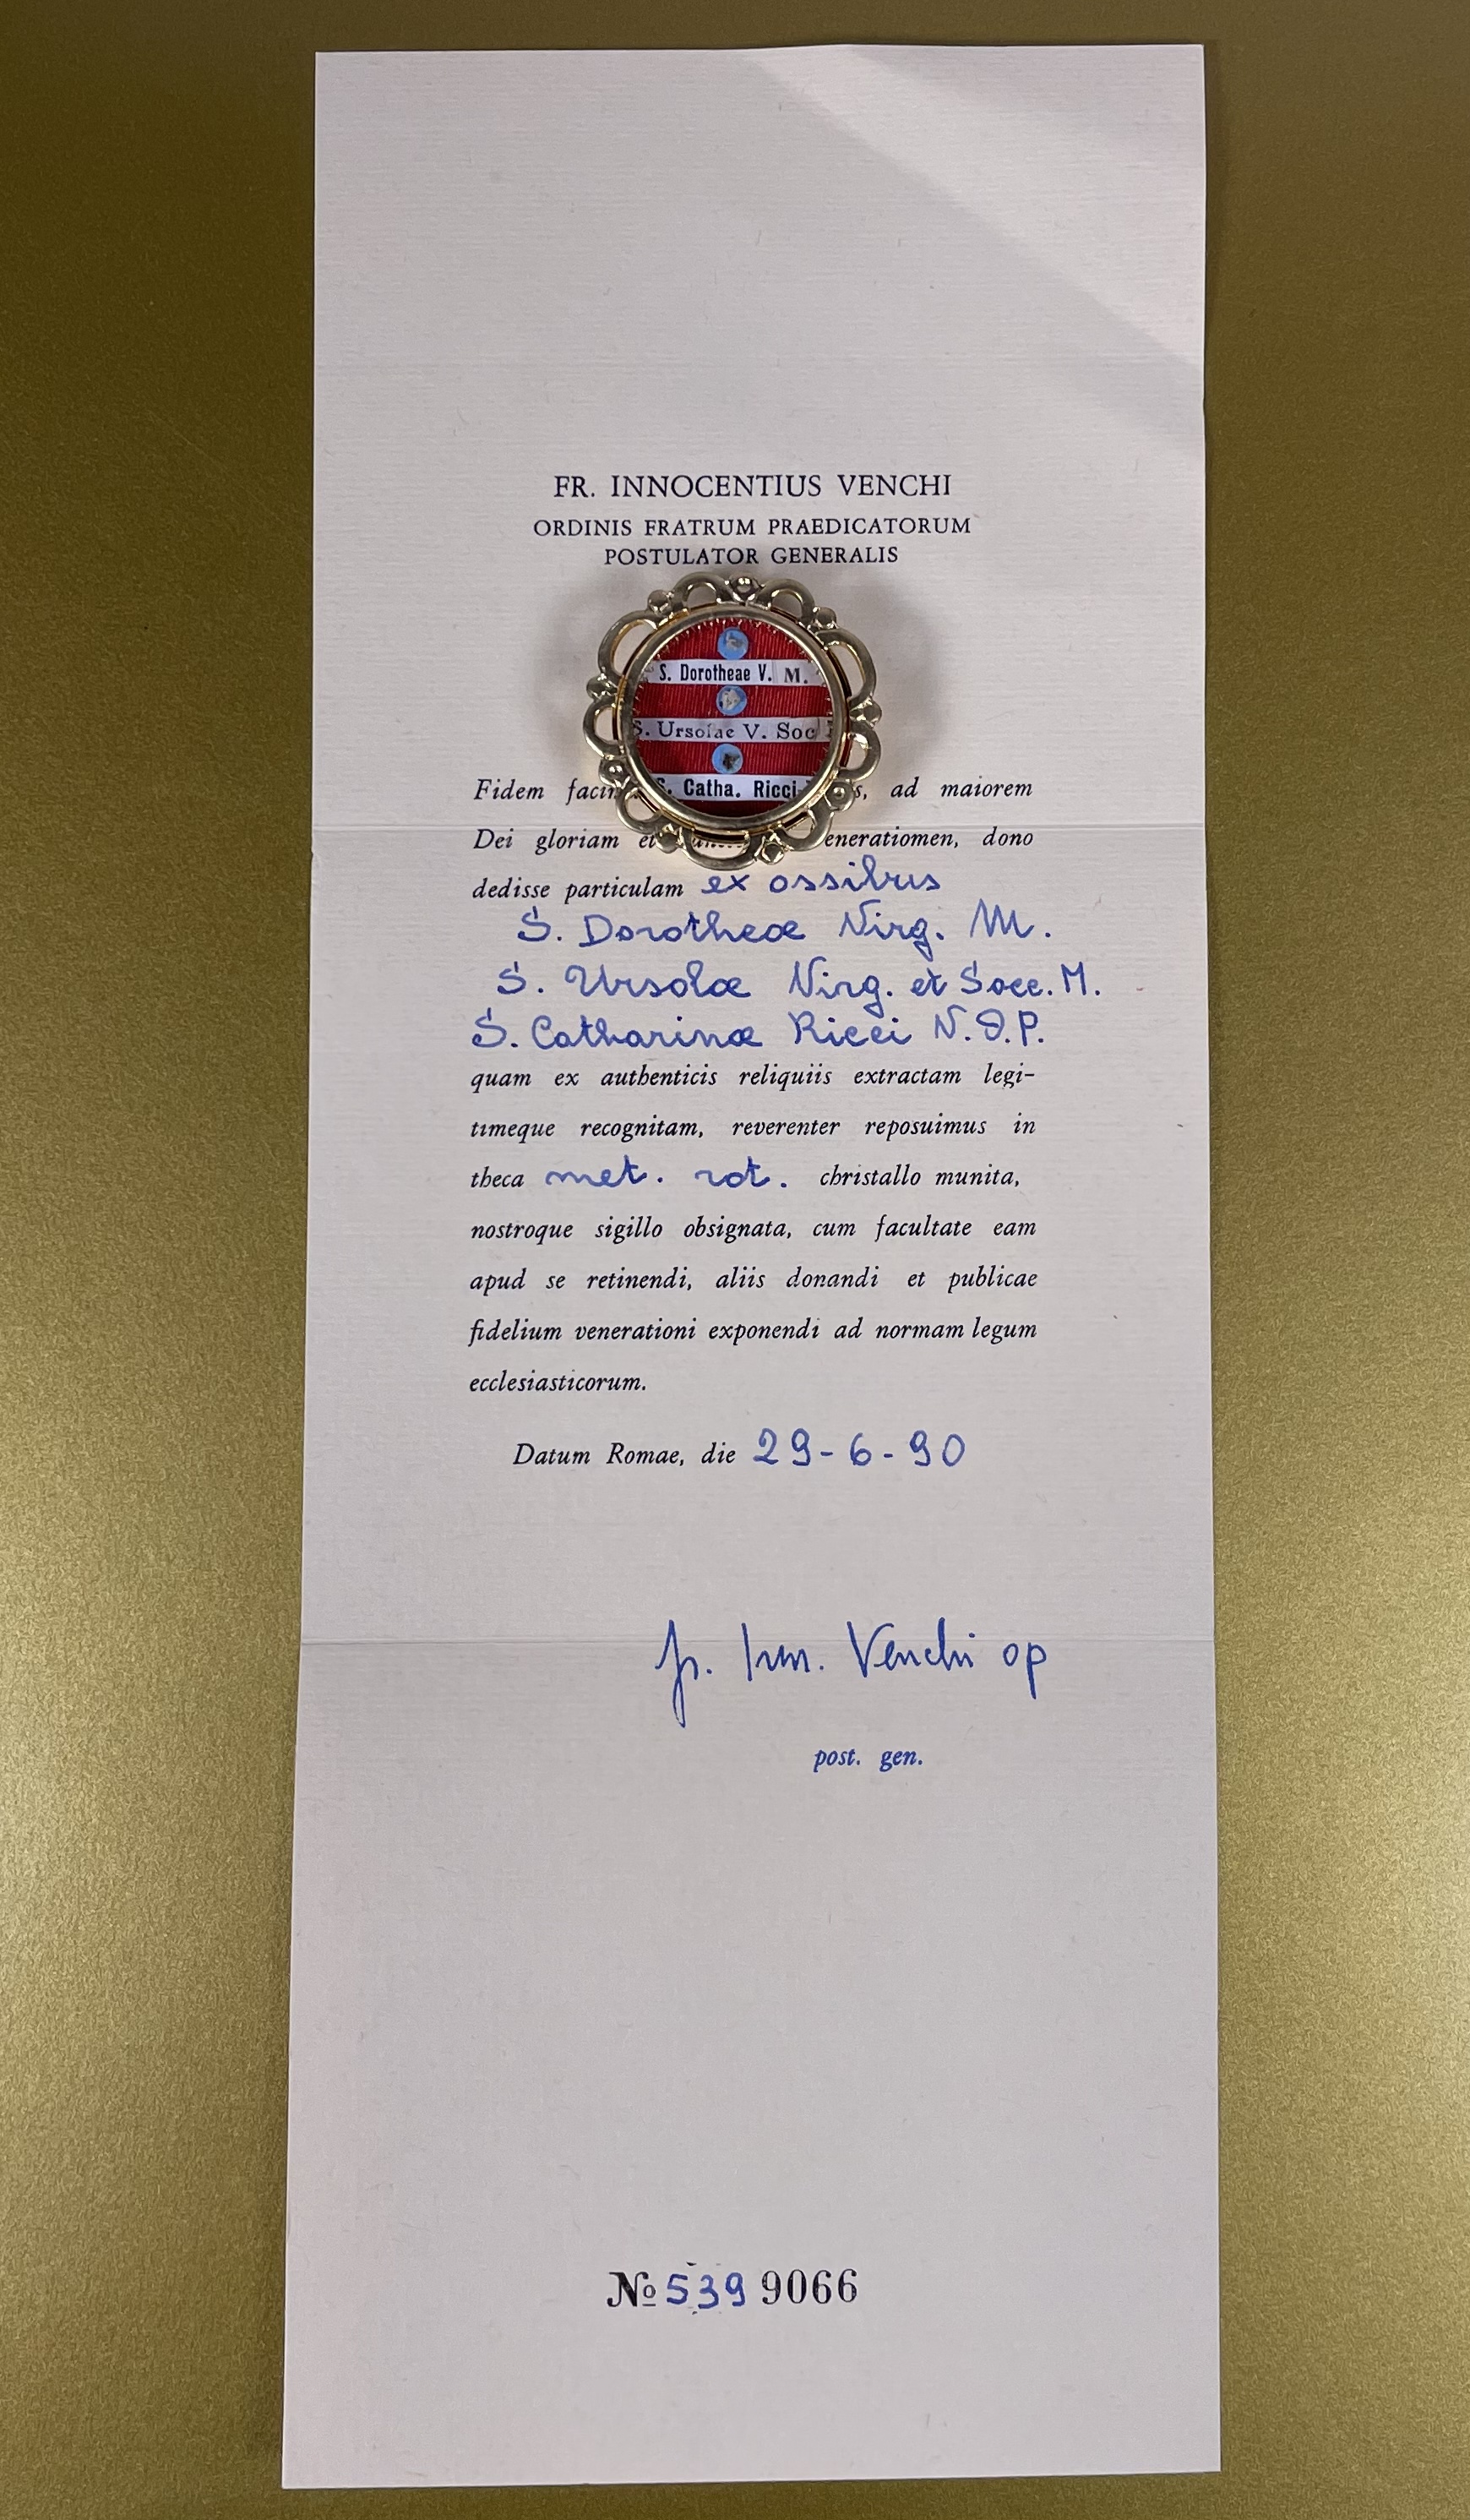 FR. INNOCENTIUS VENCHI
ORDINIS FRATRUM PRAEDICATORUM
POSTULATOR GENERALIS
S. Dorotheae V. M.
S. Ursolae V. Soc
S. Catha. Ricci
Fidem ad maiorem
Dei gloriam et dono
dedisse particulam ex ossibus
S. Dorotheæ Virg. M.
S. Ursolæ Virg. et Socc. M.
S. Catharinæ Ricci V.O.P.
quam ex authenticis reliquiis extractam legi-
timeque recognitam, reverenter reposuimus in
theca met. rot. christallo munita,
nostroque sigillo obsignata, cum facultate eam
apud se retinendi, aliis donandi et publicae
fidelium venerationi exponendi ad normam legum
ecclesiasticorum.
Datum Romae, die 29-6-90
fr. Inn. Venchi op
post. gen.
№ 539 9066